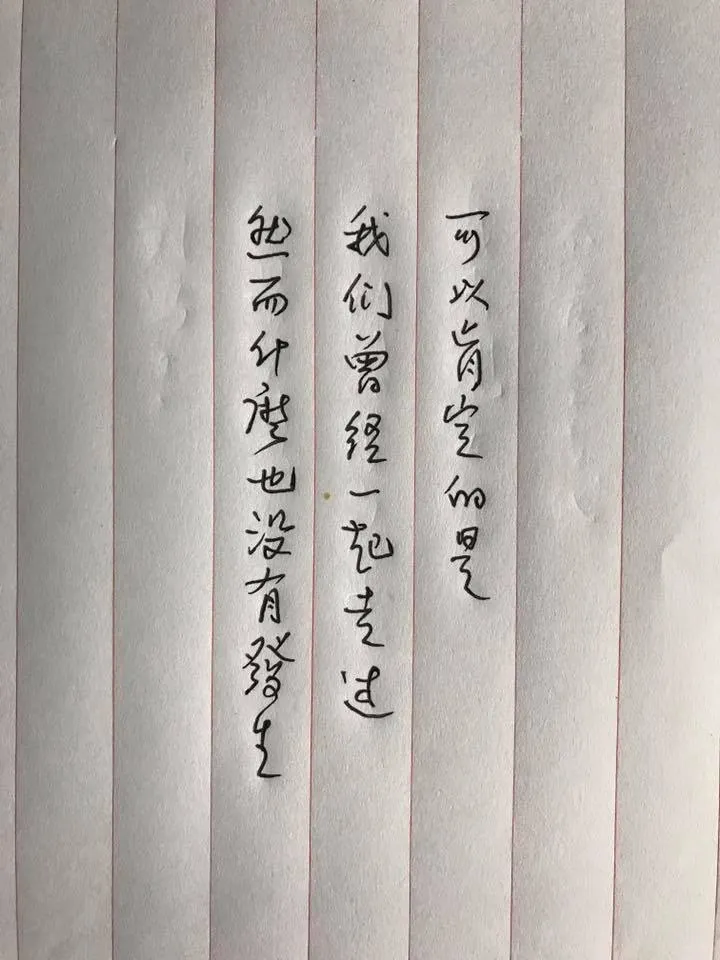 可以肯定的是
我们曾经一起走过
然而什麼也没有發生